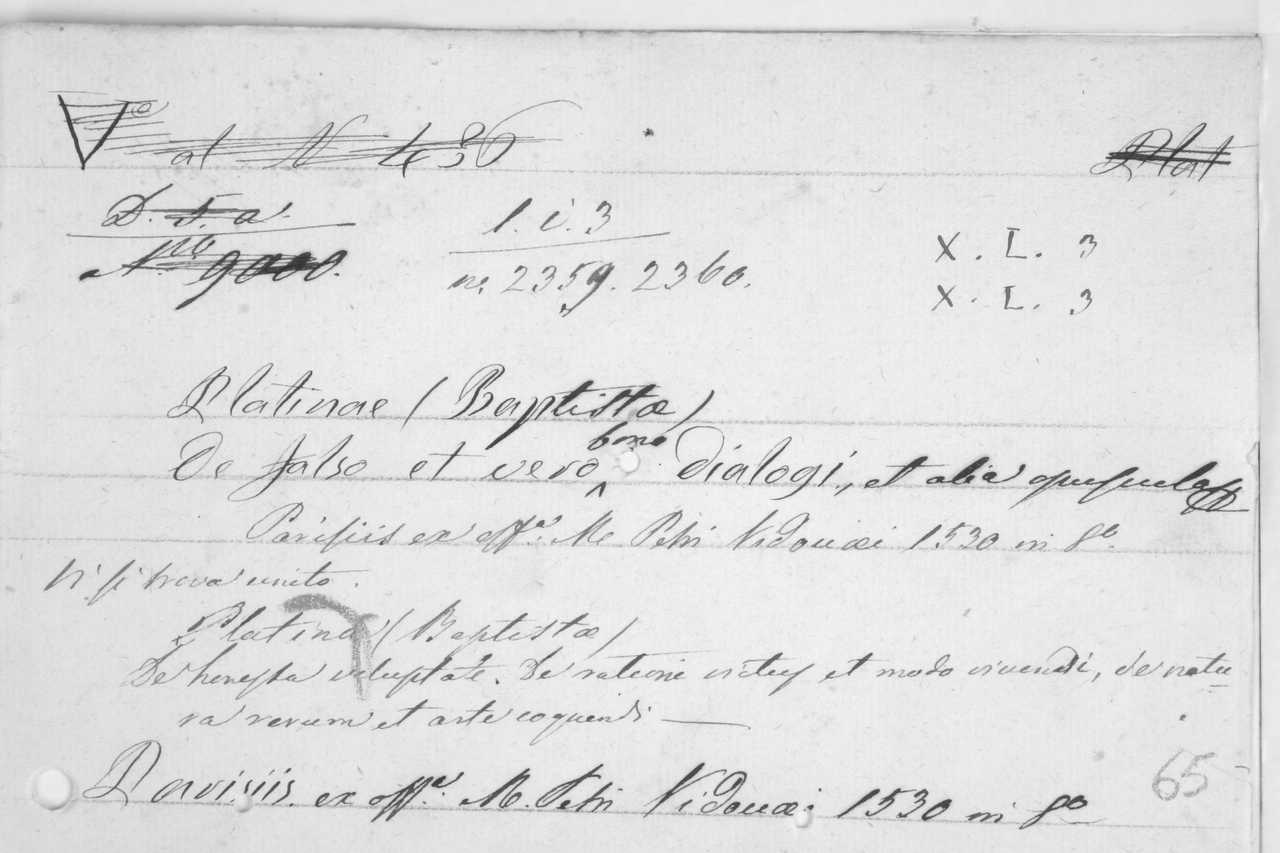 Vo al N 436
Plat
D. 5. a.
No 9000.
1. i. 3
n. 2359. 2360.
X. L. 3
X. L. 3
Platinae (Baptistæ)
De falso et vero bono dialogi, et alia opuscula
Parisiis ex offa. M. Petri Vidouæi 1530 in 8o.
Vi si trova unito.
Platina (Baptistæ)
De honesta voluptate. De ratione victus et modo vivendi, de natu
ra rerum et arte coquendi
Parisiis ex offa. M. Petri Vidouæi 1530 in 8o
65